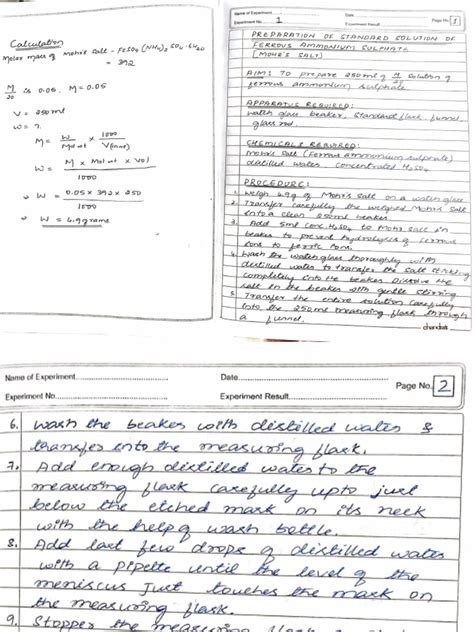 Calculation
Molar mass of Mohr's salt - FeSO4 (NH4)2 SO4 . 6H2O
= 392
M/20 is 0.05. M = 0.05
V = 250ml
W = ?
M = W / Mol wt × 1000 / V(in ml)
W = M × Mol wt × Vol / 1000
W = 0.05 × 392 × 250 / 1000
W = 4.9 grams
Name of Experiment
Date
Experiment No. 1
Experiment Result
Page No. 1
PREPARATION OF STANDARD SOLUTION OF
FERROUS AMMONIUM SULPHATE
[MOHR'S SALT]
AIM: To prepare 250ml of M/20 solution of
ferrous ammonium sulphate
APPARATUS REQUIRED:
Watch glass, beaker, Standard flask, funnel,
glass rod.
CHEMICALS REQUIRED:
Mohr's salt (Ferrous ammonium sulphate)
distilled water, Concentrated H2SO4
PROCEDURE:
1. Weigh 4.9g of Mohr's salt on a watch glass
2. Transfer carefully the weighed Mohr's salt
into a clean 250ml beaker.
3. Add 5ml conc. H2SO4 to Mohr salt in
beaker to prevent hydrolysis of ferrous
ions to ferric ions.
4. Wash the watch glass thoroughly with
distilled water to transfer the salt sticking
completely into the beaker. Dissolve the
salt in the beaker with gentle stirring
5. Transfer the entire solution carefully
into the 250ml measuring flask through
a funnel.
chandrali
Name of Experiment
Date
Page No. 2
Experiment No.
Experiment Result
6. Wash the beaker with distilled water &
transfer into the measuring flask.
7. Add enough distilled water to the
measuring flask carefully upto just
below the etched mark on its neck
with the help of wash bottle.
8. Add last few drops of distilled water
with a pipette until the level of the
meniscus just touches the mark on
the measuring flask.
9. Stopper the measuring flask